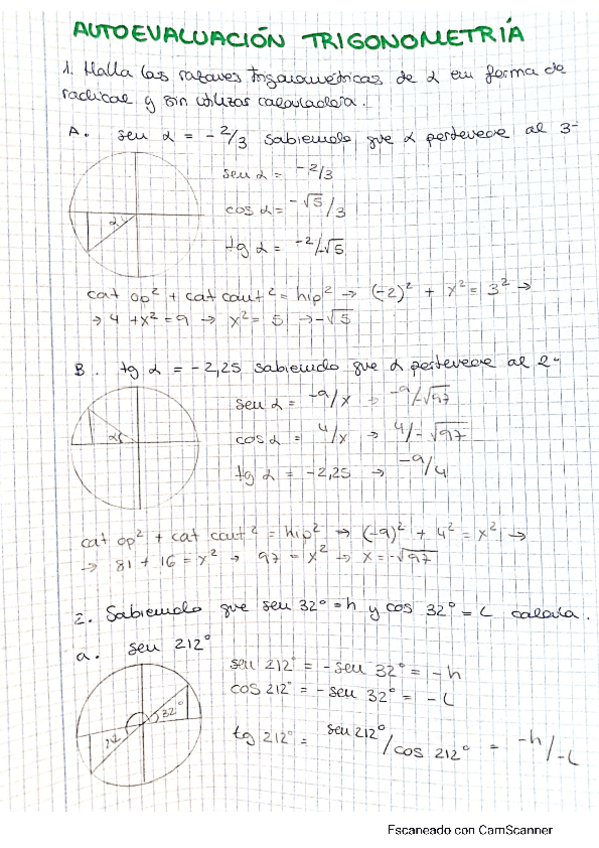 AUTOEVALUACIÓN TRIGONOMETRÍA
1. Halla las razones trigonométricas de α en forma de
radical y sin utilizar calculadora.
A. sen α = -2/3 sabiendo que α pertenece al 3º
sen α = -2/3
cos α = -√5/3
tg α = -2/-√5
α
cat op² + cat cont² = hip² → (-2)² + x² = 3² →
→ 4 + x² = 9 → x² = 5 → -√5
B. tg α = -2,25 sabiendo que α pertenece al 2º
sen α = -9/x → -9/-√97
cos α = 4/x → 4/-√97
tg α = -2,25 → -9/4
α
cat op² + cat cont² = hip² → (-9)² + 4² = x² →
→ 81 + 16 = x² → 97 = x² → x = -√97
2. Sabiendo que sen 32° = h y cos 32° = L calcula.
a. sen 212°
sen 212° = - sen 32° = -h
cos 212° = - sen 32° = -L
tg 212° = sen 212°/cos 212° = -h/-L
32°
Escaneado con CamScanner